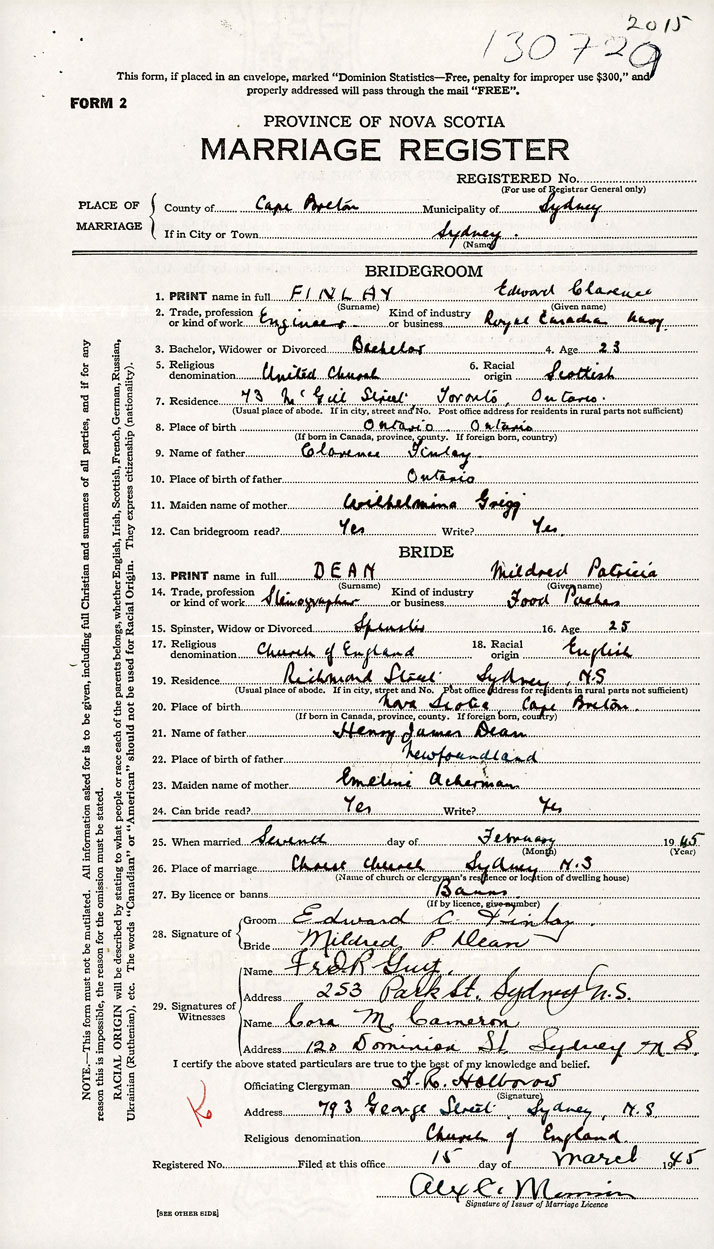 2015
130729
This form, if placed in an envelope, marked "Dominion Statistics—Free, penalty for improper use $300," and
properly addressed will pass through the mail "FREE".
FORM 2
PROVINCE OF NOVA SCOTIA
MARRIAGE REGISTER
REGISTERED No.
(For use of Registrar General only)
PLACE OF MARRIAGE
County of Cape Breton Municipality of Sydney
If in City or Town Sydney.
(Name)
BRIDEGROOM
1. PRINT name in full FINLAY Edward Clarence
(Surname) (Given name)
2. Trade, profession or kind of work Engineer Kind of industry or business Royal Canadian Navy
3. Bachelor, Widower or Divorced Bachelor 4. Age 23
5. Religious denomination United Church 6. Racial origin Scottish
7. Residence 73 McGill Street, Toronto, Ontario.
(Usual place of abode. If in city, street and No. Post office address for residents in rural parts not sufficient)
8. Place of birth Ontario. Ontario
(If born in Canada, province, county. If foreign born, country)
9. Name of father Clarence Finlay
10. Place of birth of father Ontario
11. Maiden name of mother Wilhelmina Grigg
12. Can bridegroom read? Yes Write? Yes.
BRIDE
13. PRINT name in full DEAN Mildred Patricia
(Surname) (Given name)
14. Trade, profession or kind of work Stenographer Kind of industry or business Food
15. Spinster, Widow or Divorced Spinster 16. Age 25
17. Religious denomination Church of England 18. Racial origin English
19. Residence Richmond Street Sydney, N.S
(Usual place of abode. If in city, street and No. Post office address for residents in rural parts not sufficient)
20. Place of birth Nova Scotia Cape Breton.
(If born in Canada, province, county. If foreign born, country)
21. Name of father Henry James Dean
22. Place of birth of father Newfoundland
23. Maiden name of mother Emeline Ackerman
24. Can bride read? Yes Write? Yes
25. When married Seventh day of February 1945
(Month) (Year)
26. Place of marriage Christ Church Sydney N.S
(Name of church or clergyman's residence or location of dwelling house)
27. By licence or banns Banns
(If by licence, give number)
28. Signature of Groom Edward C Finlay.
Bride Mildred P Dean
29. Signatures of Witnesses Name Guy.
Address 253 Park St. Sydney N.S.
Name Cora M. Cameron
Address 120 Dominion St Sydney N.S.
I certify the above stated particulars are true to the best of my knowledge and belief.
Officiating Clergyman F. R. Holborow
(Signature)
Address 793 George Street, Sydney, N.S
Religious denomination Church of England
Registered No. Filed at this office 15 day of March 1945
Alex C.
Signature of Issuer of Marriage Licence
[SEE OTHER SIDE]
NOTE.—This form must not be mutilated. All information asked for is to be given, including full Christian and surnames of all parties, and if for any
reason this is impossible, the reason for the omission must be stated.
RACIAL ORIGIN will be described by stating to what people or race each of the parents belongs, whether English, Irish, Scottish, French, German, Russian,
Ukrainian (Ruthenian), etc. The words "Canadian" or "American" should not be used for Racial Origin. They express citizenship (nationality).